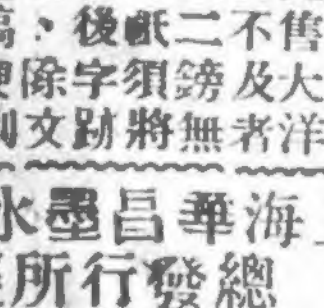 售大洋
不及者
二鎊無
須將
後字跡
、除文
海華昌墨水
總發行所